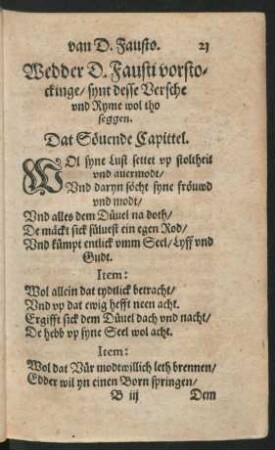 van D. Fausto. 23
Wedder D. Fausti vorsto-
ckinge/ synt desse Versche
vnd Ryme wol tho
seggen.
Dat Söuende Capittel.
WOl syne Lust settet vp stoltheit
vnd auermodt/
Vnd daryn söcht syne fröuwd
vnd modt/
Vnd alles dem Düuel na doth/
De mäckt sick sülvest ein egen Rod/
Vnd kümpt entlick vmm Seel/ Lyff vnd
Gudt.
Item:
Wol allein dat tydtlick betracht/
Vnd vp dat ewig hefft neen acht.
Ergifft sick dem Düuel dach vnd nacht/
De hebb vp syne Seel wol acht.
Item:
Wol dat Vür modtwillich leth brennen/
Edder wil yn einen Born springen/
B iij Dem